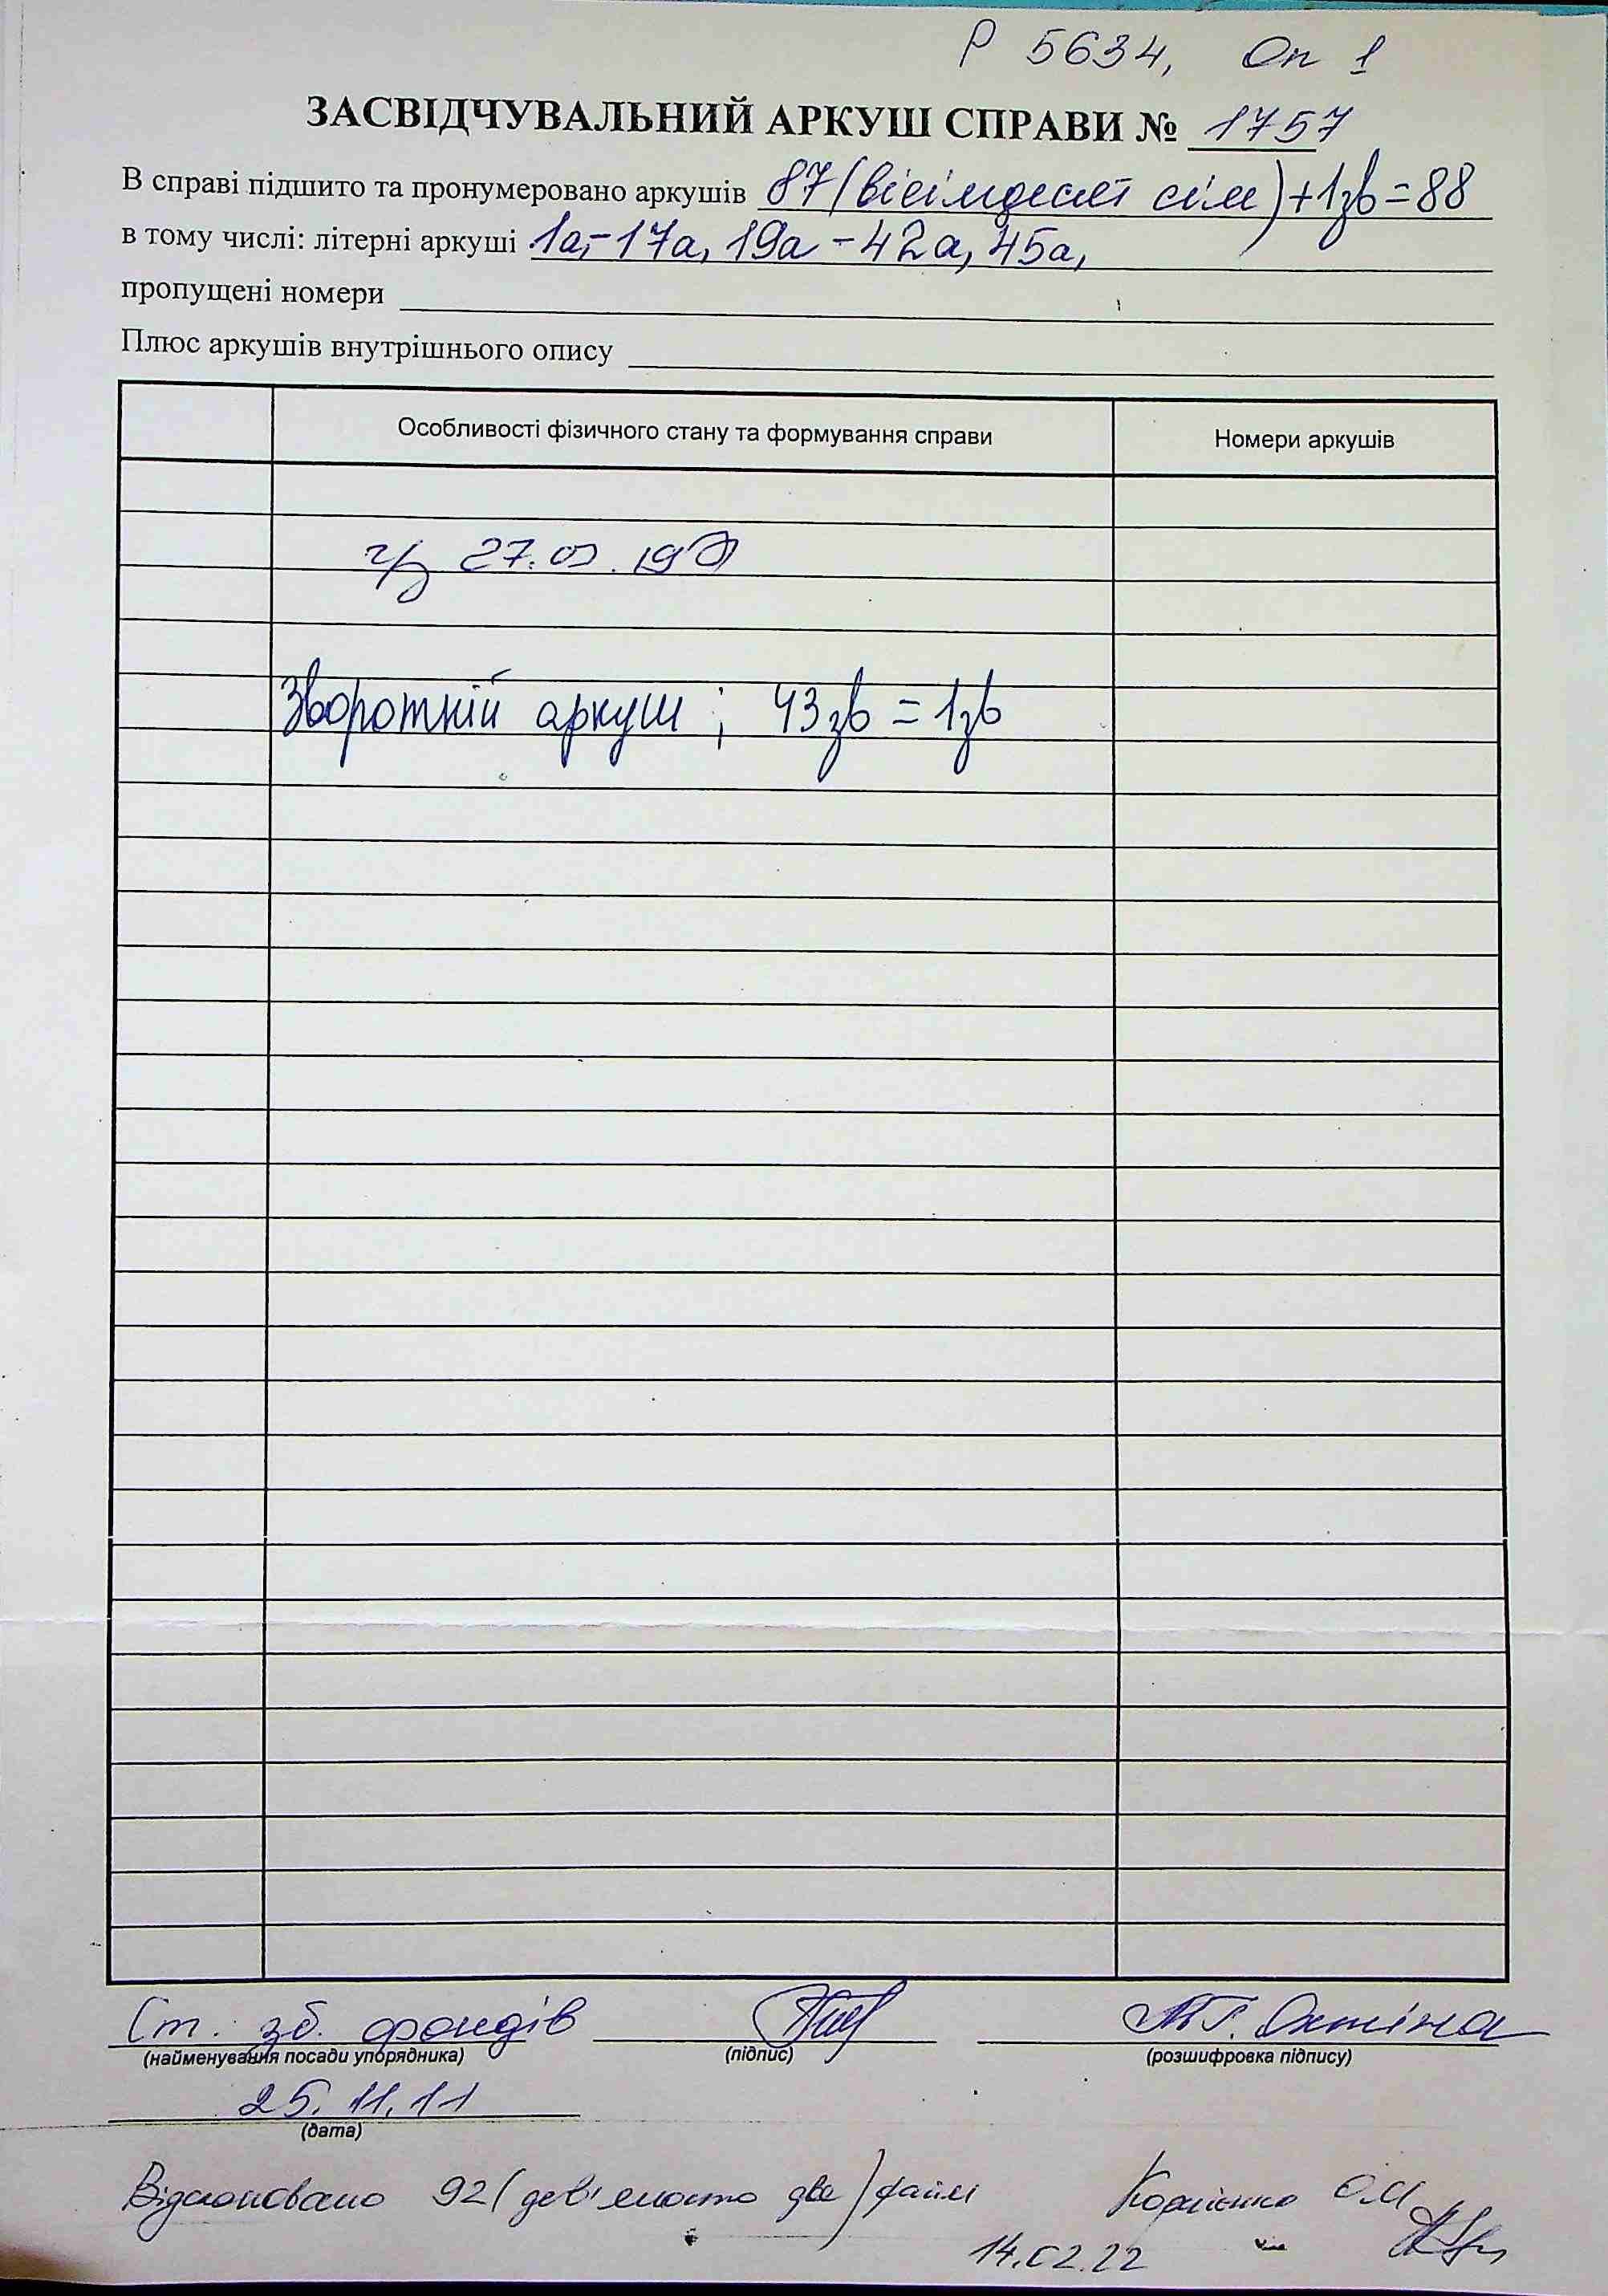 Р 5634, Оп 1
ЗАСВІДЧУВАЛЬНИЙ АРКУШ СПРАВИ № 1757
В справі підшито та пронумеровано аркушів 87 (вісімдесят сім) + 1зв = 88
в тому числі: літерні аркуші 1а,-17а, 19а - 42а, 45а,
пропущені номери
Плюс аркушів внутрішнього опису
Особливості фізичного стану та формування справи Номери аркушів
27.
Зворотній аркуш ; 43зв = 1зв
Ст. зб. фондів
(найменування посади упорядника) (підпис) (розшифровка підпису)
25.11.11
(дата)
Відскановано 92 (дев'яносто два) файл Корнієнко О.М
14.02.22